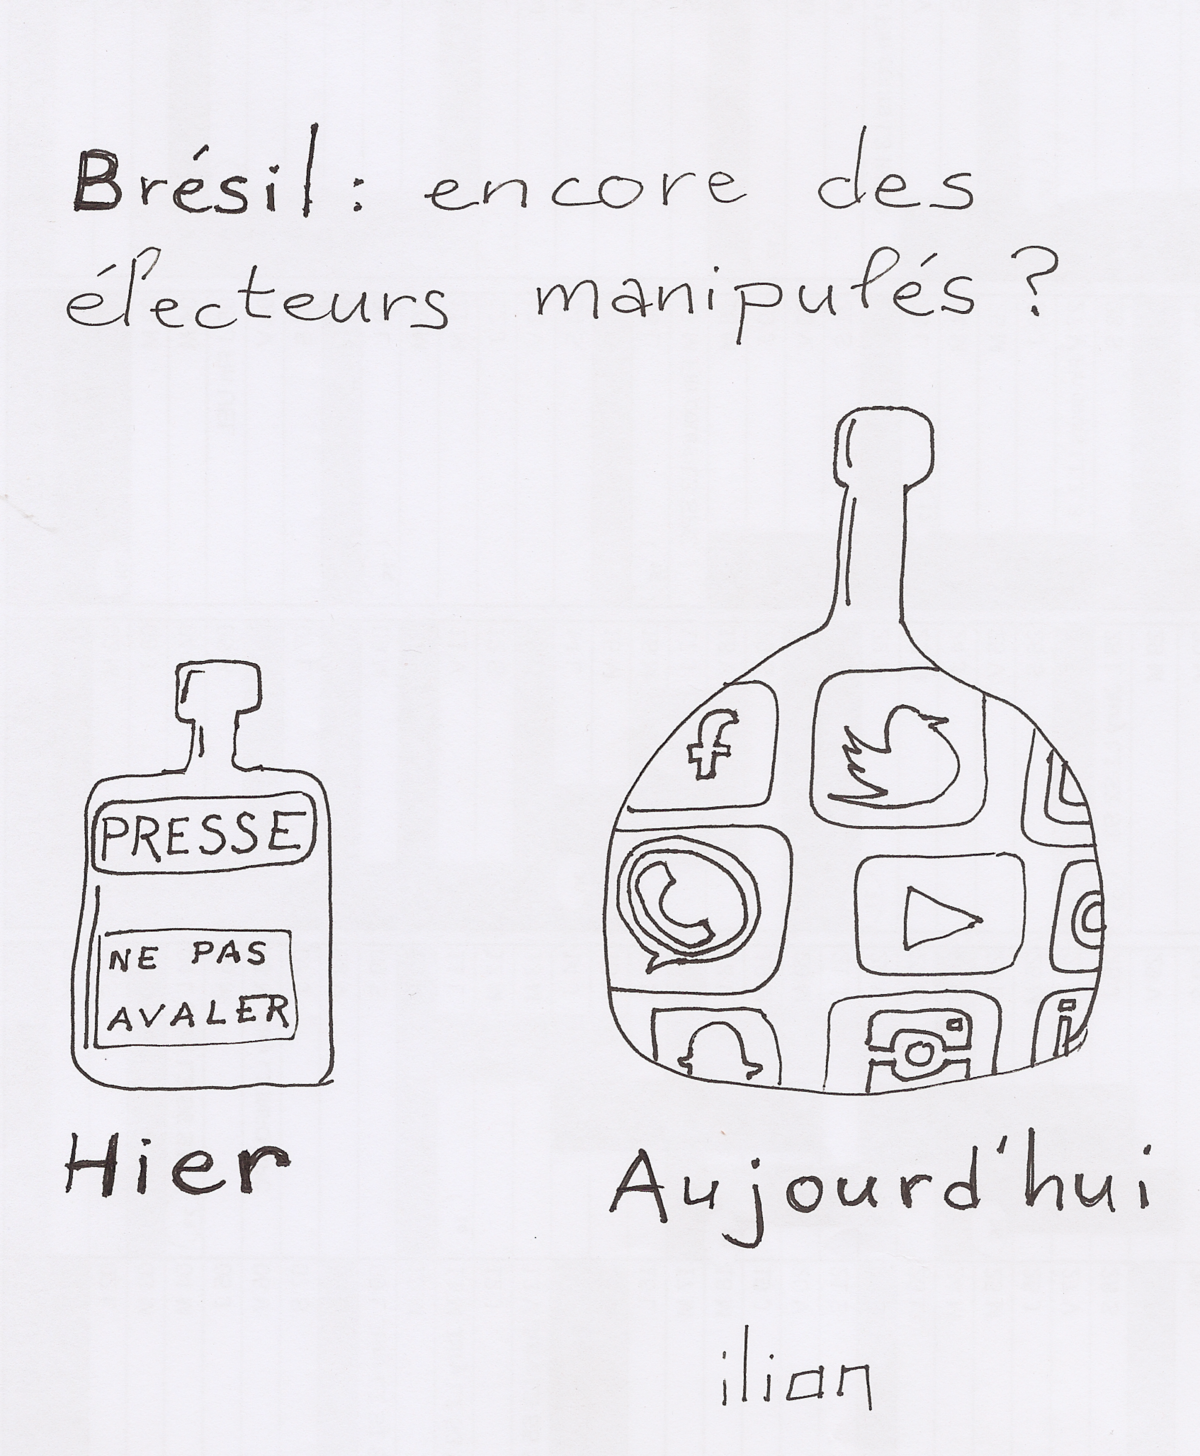 Brésil : encore des
électeurs manipulés ?
PRESSE
NE PAS
AVALER
Hier
Aujourd'hui
ilian